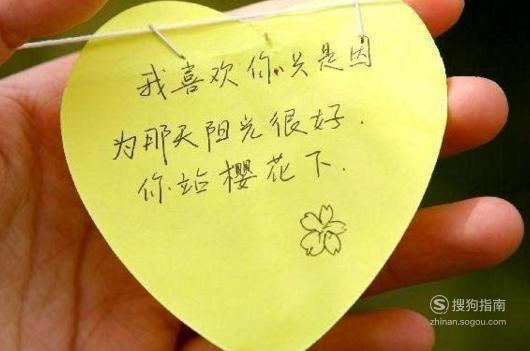 我喜欢你只是因
为那天阳光很好.
你站樱花下.
搜狗指南
zhinan.sogou.com